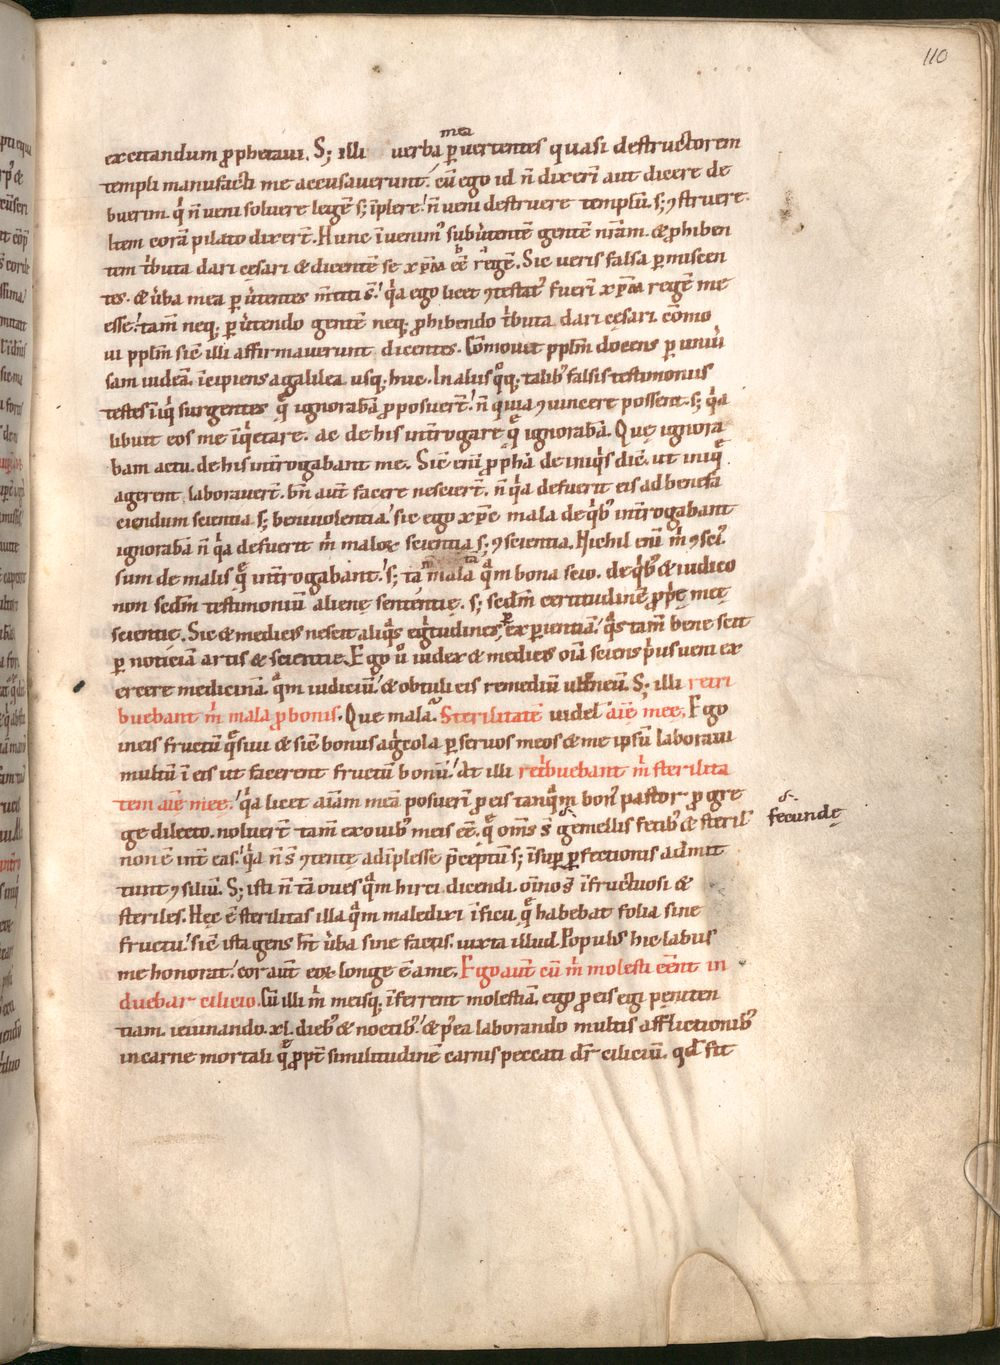 110
excitandum ꝓphetaui. S; illi uerba mea ꝑuertentes quasi destructorem
templi manufacti me accusauerunt. cū ego id n̄ dixeri aut dicere de
buerim. qͥ n̄ ueni soluere legē s; īplere. n̄ ueni destruere templū. s; ꝯstruere.
Item corā pilato dixerꝭ. Hunc īuenimꝰ subuͥtentē gentē nrām. & ꝓhiben
tem tͥbuta dari cesari & dicentē se xp̄m eē regē. Sic ueris falsa ꝑmiscen
tes. & uͥba mea ꝑuͥtentes m̄titi s̄. qͥa ego licet ꝯtestatꝰ fueri xp̄m regē me
esse. tam̄ neq; ꝑuͥtendo gentē neq; ꝓhibendo tͥbuta dari cesari. cōmo
ui pplm̄ sic̄ illi affirmauerunt dicentes. Cōmouit pplm̄ docens ꝑ uniuͥ
sam iudeā. īcipiens a galilea usq; huc. In aliis qͦq; talibꝰ falsis testimoniis
testes inͥqͥ surgentes q̄ ignorabā ꝓposuerꝭ. n̄ quia ꝯuincere possent. s; qͥa
libuit eos me inqͥetare. ac de his intͥrogare q̄ ignorabā. Quę ignora
bam actu. de his intͥrogabant me. Sic̄ eni ꝓph̄a de iniqͥs dic̄. ut iniq̄
agerent laborauerꝭ. bn̄ aut̄ facere nescierꝭ. n̄ qͥa defuerit eis ad benefa
ciendum scientia s; beniuolentia. sic ego xp̄c mala de qͥbꝰ intͥrogabant
ignorabā n̄ qͥa defuerit mͥ maloꝝ scientia s; ꝯscientia. Nichil eni mͥ ꝯsciꝰ
sum de malis q̄ intͥrogabant. s; tā mala qͣm bona scio. de qͥbꝰ & iudico
non scdm̄ testimoniū alienę sententię. s; scdm̄ certitudinē ꝓpͥę meę
scientię. Sic & medicꝰ nescit aliqͣs egͥtudines ꝑ exꝑientiā. qͣs tam̄ bene scit
ꝑ noticiam artis & scientię. Ego uͦ iudex & medicꝰ oīa sciens pͥus ueni ex
ercere medicinā. qͣm iudiciū. & obtuli eis remediū ulneū. S; illi retri
buebant mͥ mala ꝓ bonis. Que mala. Sterilitatē uidelꝭ aīę meę. Ego
in eis fructū qͣsiui & sic̄ bonus agͥcola ꝑ seruos meos & me ipsū laboraui
multū ī eis ut facerent fructū bonū. At illi retͥbuebant mͥ sterilita
tem aīę meę. qͥa licet aīam meā posueri ꝓ eis tanqͣm bonꝰ pastor ꝓ gre
ge dilecto. noluerꝭ tam̄ ex ouibꝰ meis eē. q̄ om̄s s̄ gemellis fetibꝰ & sterilꝭ
fecundę
non ē intͥ eas. qͥa n̄ s̄ ꝯtentę adīplesse p̄ceptū s; īsuꝑ ꝑfectionis admit
tunt ꝯsiliū. S; isti n̄ tā oues qͣm hirci dicendi. oīno s̄ īfructuosi &
steriles. Hęc ē sterilitas illa qͣm maledixi ī ficu. q̄ habebat folia sine
fructu. sic̄ ista gens ht̄ uͥba sine factis. iuxta illud. Populꝰ hic labiis
me honorat. cor aut̄ eoꝝ longe ē a me. Ego aut̄ cū mͥ molesti eēnt in
duebar cilicio. Cū illi mͥ meisq; īferrent molestiā. ego ꝓ eis egi pęniten
tiam. ieiunando. xl. diebꝰ & noctibꝰ. & p̄ea laborando multis afflictionibꝰ
in carne mortali q̄ ꝓpt̄ similitudinē carnis peccati dr̄ ciliciū. qd̄ fit